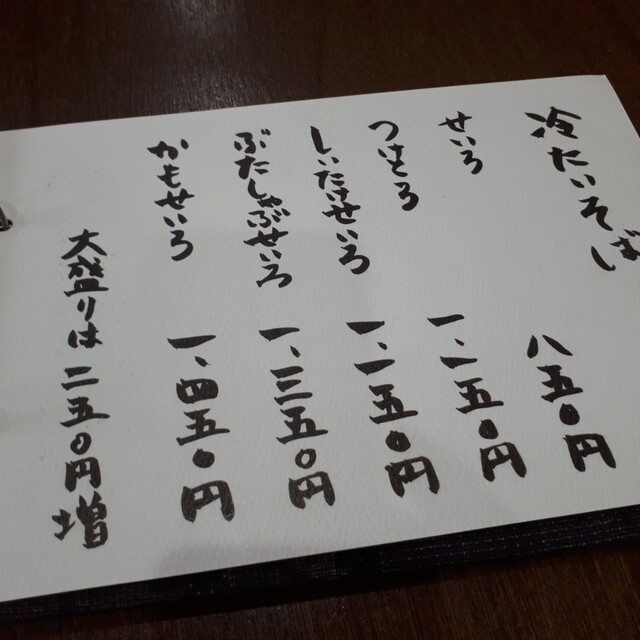 冷たいそば
せいろ 八五〇円
つけとろ 一、一五〇円
しいたけせいろ 一、一五〇円
ぶたしゃぶせいろ 一、三五〇円
かもせいろ 一、四五〇円
大盛りは二五〇円増